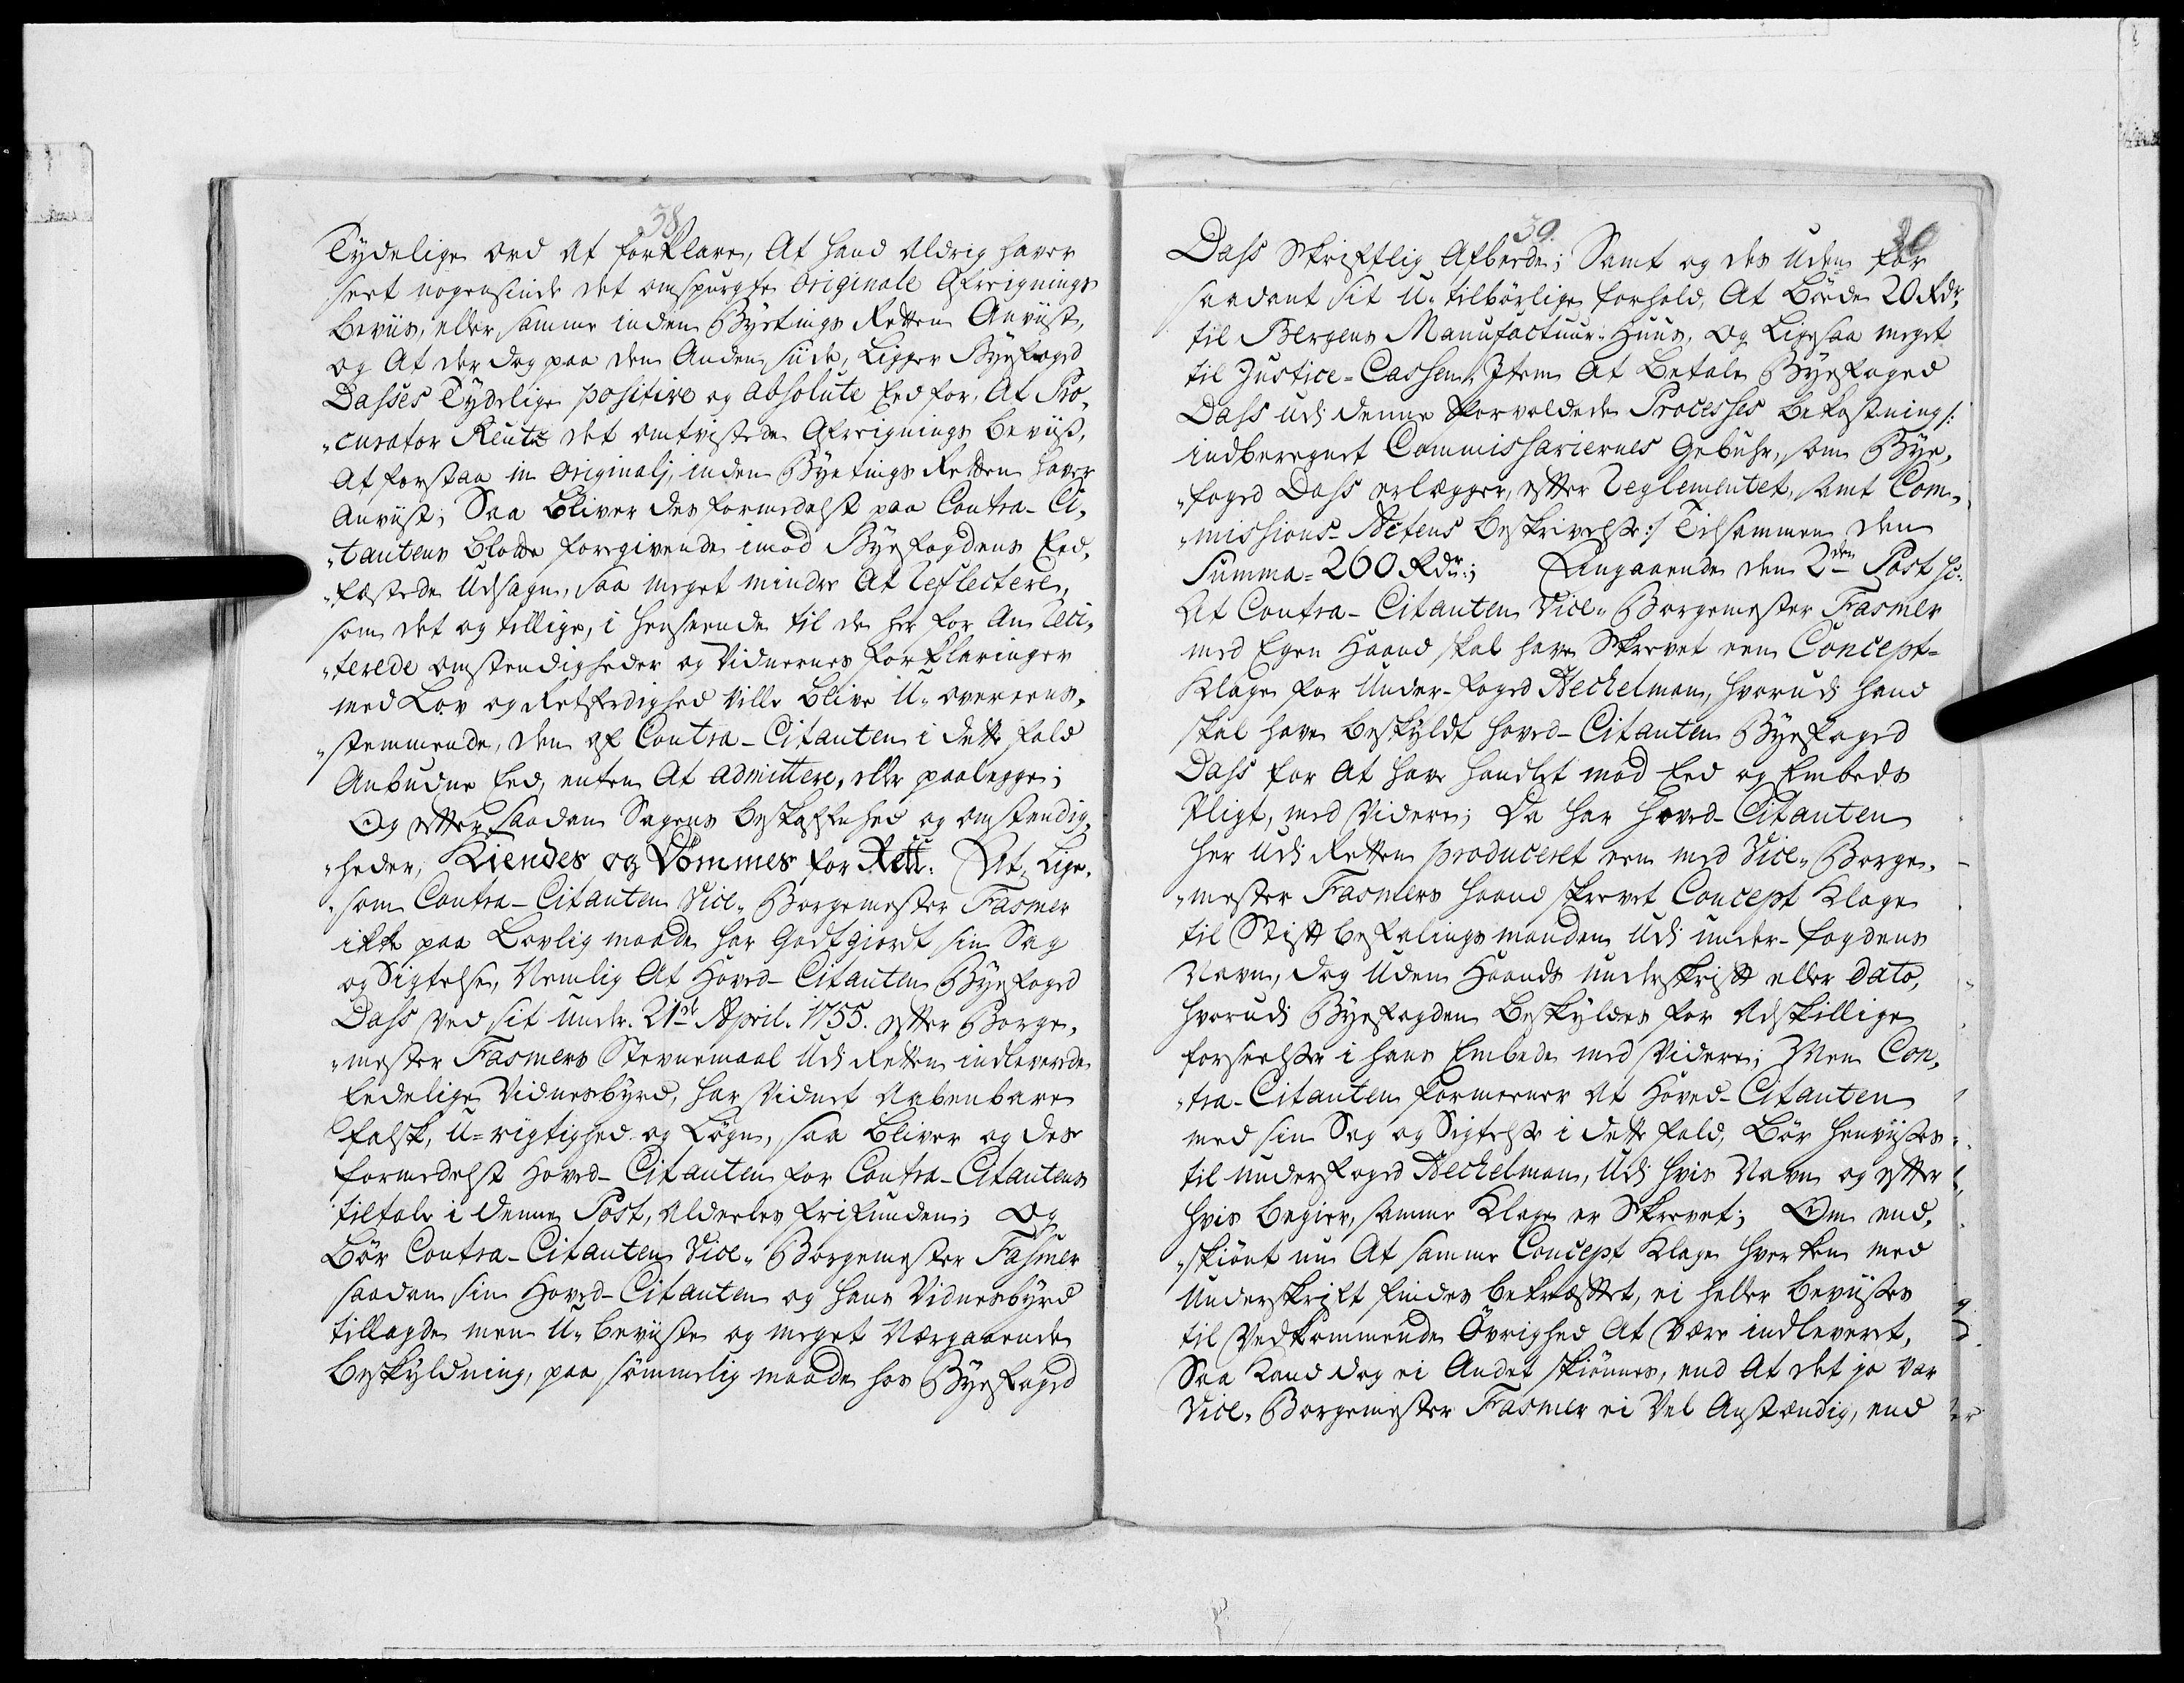 38
Tydelige ord at forklare, At hand Aldrig haver
seet nogensinde det omspurgte originale Afreignings
beviis, eller samme inden Byetings Retten Anviist,
og At der dog paa den Anden siide, Ligger Byefoged
Dasses Tydelige positive og absolute Eed for, At Pro-
„curator Reutz det omtvistede Afreignings beviis,
At forstaa in originalj, inden Byetings Retten haver
Anviist; Saa Bliver des formedelst paa Contra-Ci-
„tantens Blotte foregivende imod Byefogdens Eed-
„fæstede Udsagn, saa meget mindre At reflectere,
som det og tillige, i henseende til de her for An reci-
„terede omstendigheder og Vidnernes forklaringer
med Lov og Retferdighed ville blive U-overeens-
„stemmende, den af Contra-Citanten i dette fald
Anbudne Eed, enten At admittere, eller paalegge;
Og efter saadan Sagens beskaffenhed og omstendig-
„heder, Kiendes og Dömmes for Rett: At, Lige-
„som Contra-Citanten Vice-Borgemester Fasmer
ikke paa Lovlig maade har Godtgiordt sin Sag
og Sigtelse, Nemlig At Hoved-Citanten Byefoged
Dass ved sit under 21de April 1755. efter Borge-
„mester Fasmers Stevnemaal Udi Retten indleverede
Eedelige Vidnesbyrd, har Vidnet Aabenbare
falsk, U-rigtighed og Løgn, saa Bliver og des
formedelst Hoved-Citanten for Contra-Citantens
tiltale i denne Post, Aldeeles frifunden; Og
Bör Contra-Citanten Vice-Borgemester Fasmer
saadan sin Hoved-Citanten og hans Vidnesbyrd
tillagde men U-beviiste og meget Nærgaaende
beskyldning, paa sømmelig maade hos Byefoged
39.
Dass Skriftlig Afbeede; Samt og des uden for
saadant sit U-tilbörlige forhold, At Böde 20 Rdr.
til Bergens Manufactuur-Huus, og Ligesaa meget
til Justice-Cassen, Item At Betale Byefoged
Dass udi denne forvoldede Processes bekostning /:
indberegnet Commissariernes Gebuhr, som Bye-
„foged Dass erlægger, efter Reglementet, samt Com-
„missions-Actens beskrivelse :/ Tilsammen den
Summa = 260 Rdr.; Angaaende den 2den Post sc:
At Contra-Citanten Vice-Borgemester Fasmer
med Egen Haand skal have Skrevet een Concept-
Klage for Under-foged Hechelman, hvorudi hand
skal have beskyldt Hoved-Citanten Byefoged
Dass for At have handlet mod Eed og Embeds
Pligt, med Videre; Da har Hoved-Citanten
her udi Retten produceret een med Vice-Borge-
„mester Fasmers haand skrevet Concept Klage
til Stiftbefalingsmanden Udi under-fogdens
Navn, dog Uden Haands underskrift eller dato,
hvorudi Byefogden Beskyldes for Adskillige
forseelser i hans Embede med Videre; Men Con-
„tra-Citanten formeener At Hoved-Citanten
med sin Sag og Sigtelse i dette fald, Bör henviises
til underfoged Hechelman, Udi hvis Navn og efter
hvis begier, samme Klage er Skrevet; Om end-
„skiönt nu At samme Concept Klage hverken med
Underskrift findes bekræftet, ei heller beviises
til Vedkommende Övrighed At være indlevert,
Saa kand dog ei Andet skiönnes, end At det jo var
Vice-Borgemester Fasmer ei Vel Anstændig, end